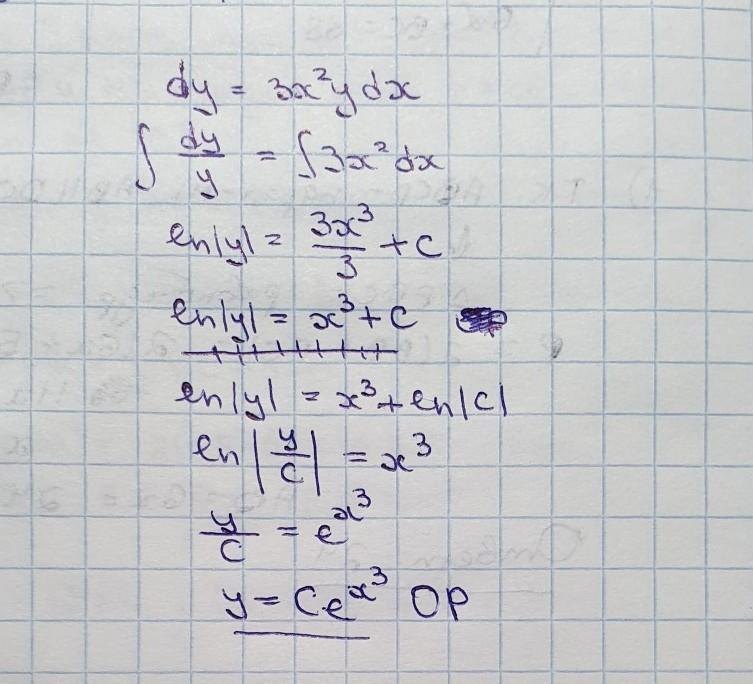 dy = 3x²y dx
∫ dy/y = ∫ 3x² dx
ln|y| = 3x³/3 + C
ln|y| = x³ + C
ln|y| = x³ + ln|C|
ln|y/C| = x³
y/C = e^x³
y = Ce^x³ OP